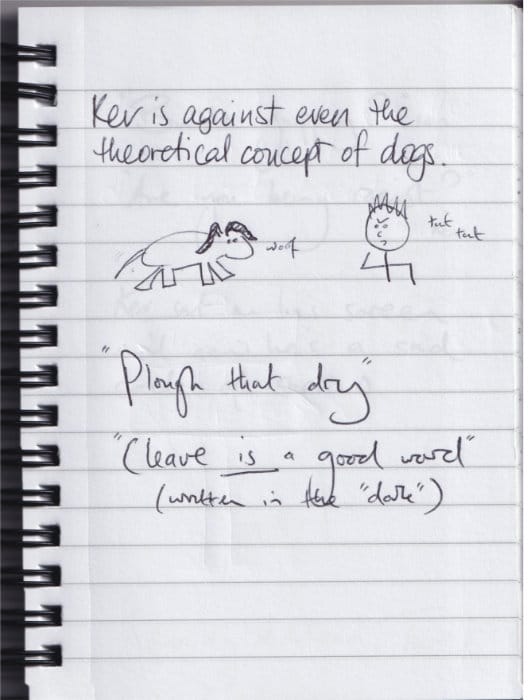 Kev is against even the
theoretical concept of dogs.
woof
tut
tut
"Plough that dry"
"Cleave is a good word"
(written in the "dark")